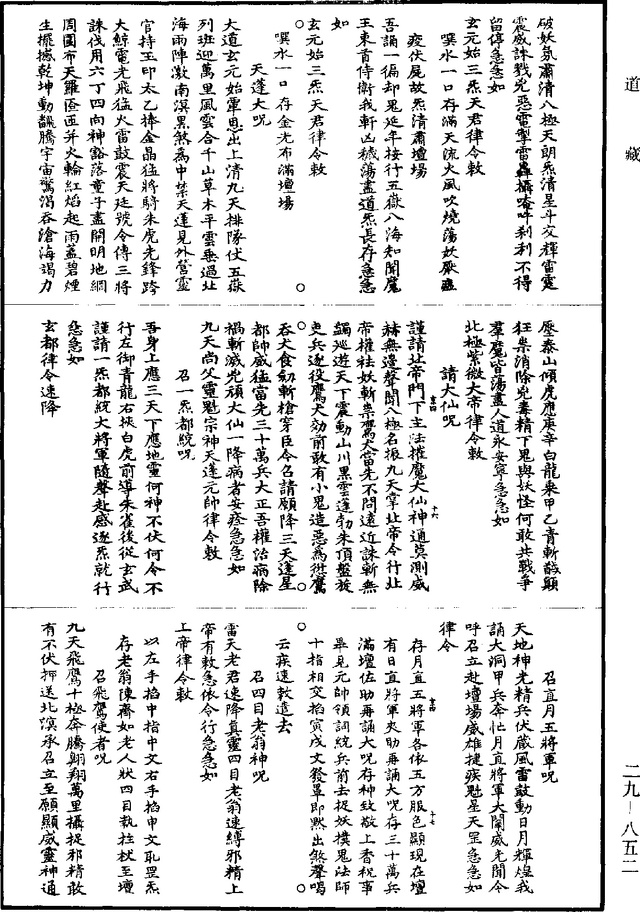 道藏
破妖氛肅清八極天朗炁清星斗交輝雷霆
震威誅戮兇惡電掣雷轟攝唵吽利利不得
留停急急如
玄元始三炁天君律令敕
噀水一口存滿天流火風吹燒蕩妖厭蠱
疫伏屍故炁清肅壇場
吾誦一徧却鬼延年按行五嶽八海知聞魔
王束首侍衛我軒凶穢蕩盡道炁長存急急
如
玄元始三炁天君律令敕
噀水一口存金光布滿壇場
天蓬大呪
大道玄元始單恩出上清九天排隊仗五嶽
列班迎萬里風雲合千山草木平雲乗過北
海雨陣激南溟黑煞為中禁天蓬見外營靈
官持玉印太乙捧金晶猛將騎朱虎先鋒跨
大鯨電光飛猛火雷鼓震天廷號令傳三將
誅伐用六丁四向神谿落童子盡開明地網
周圍布天羅匝匝幷火輪紅焰起雨蓋碧煙
生擺撼乾坤動飜騰宇宙驚渴吞滄海竭力
壓泰山傾虎應庚辛白龍乗甲乙青斬馘顛
狂祟消除兇毒精下鬼與妖怪何敢共戰爭
羣魔皆蕩盡人道永安寧急急如
北極紫微大帝律令敕
請大仙呪
謹請北帝門下主法權魔大仙神通莫測威
赫無邊聲聞八極名振九天掌北帝令行北
帝權袪妖斬祟鷹犬當先不問遠近誅斬無
蠲巡遊天下震動山川黑雲蓬勃朱頂盤旋
吏兵逐役鷹犬効前敢有小鬼造惡為愆鷹
吞犬食劍斬槍穿臣今召請願降三天蓬星
都帥威猛當先三十萬兵大正吾權治病除
禍斬滅兇頑大仙一降病者安痊急急如
九天尚父靈魁宗神天蓬元帥律令敕
召一炁都統呪
吾身上應三天下應地靈何神不伏何令不
行左御青龍右挾白虎前導朱雀後從玄武
謹請一炁都統大將軍隨聲赴感逐炁就行
急急如
玄都律令速降
召直月五將軍呪
天地神光精兵伏藏風雷鼓動日月輝煌我
誦大洞甲兵奔忙月直將軍大闡威光聞今
呼召立赴壇場威雄捷疾魁星天罡急急如
律令
存月直五將軍各依五方服色顯現在壇
有日直將軍夾助再誦大呪存三十萬兵
滿壇佐助再誦大呪存神致敬上香祝事
畢見元帥領詞統兵前去捉妖撲鬼法師
十指相交掐寅戌文發罩即默出煞聲喝
云疾速敕遣去
召四目老翁神呪
雷天老君速降真靈四目老翁速縛邪精上
帝有敕急依令行急急如
上帝律令敕
以左手掐中指中文右手掐申文恥罡炁
存老翁陳齋如老人狀四目執拄杖至壇
召飛鷹使者呪
九天飛鷹十極奔騰翺翔萬里攝捉邪精敢
有不伏押送北溟承召立至願顯威靈神通
二九—八五二